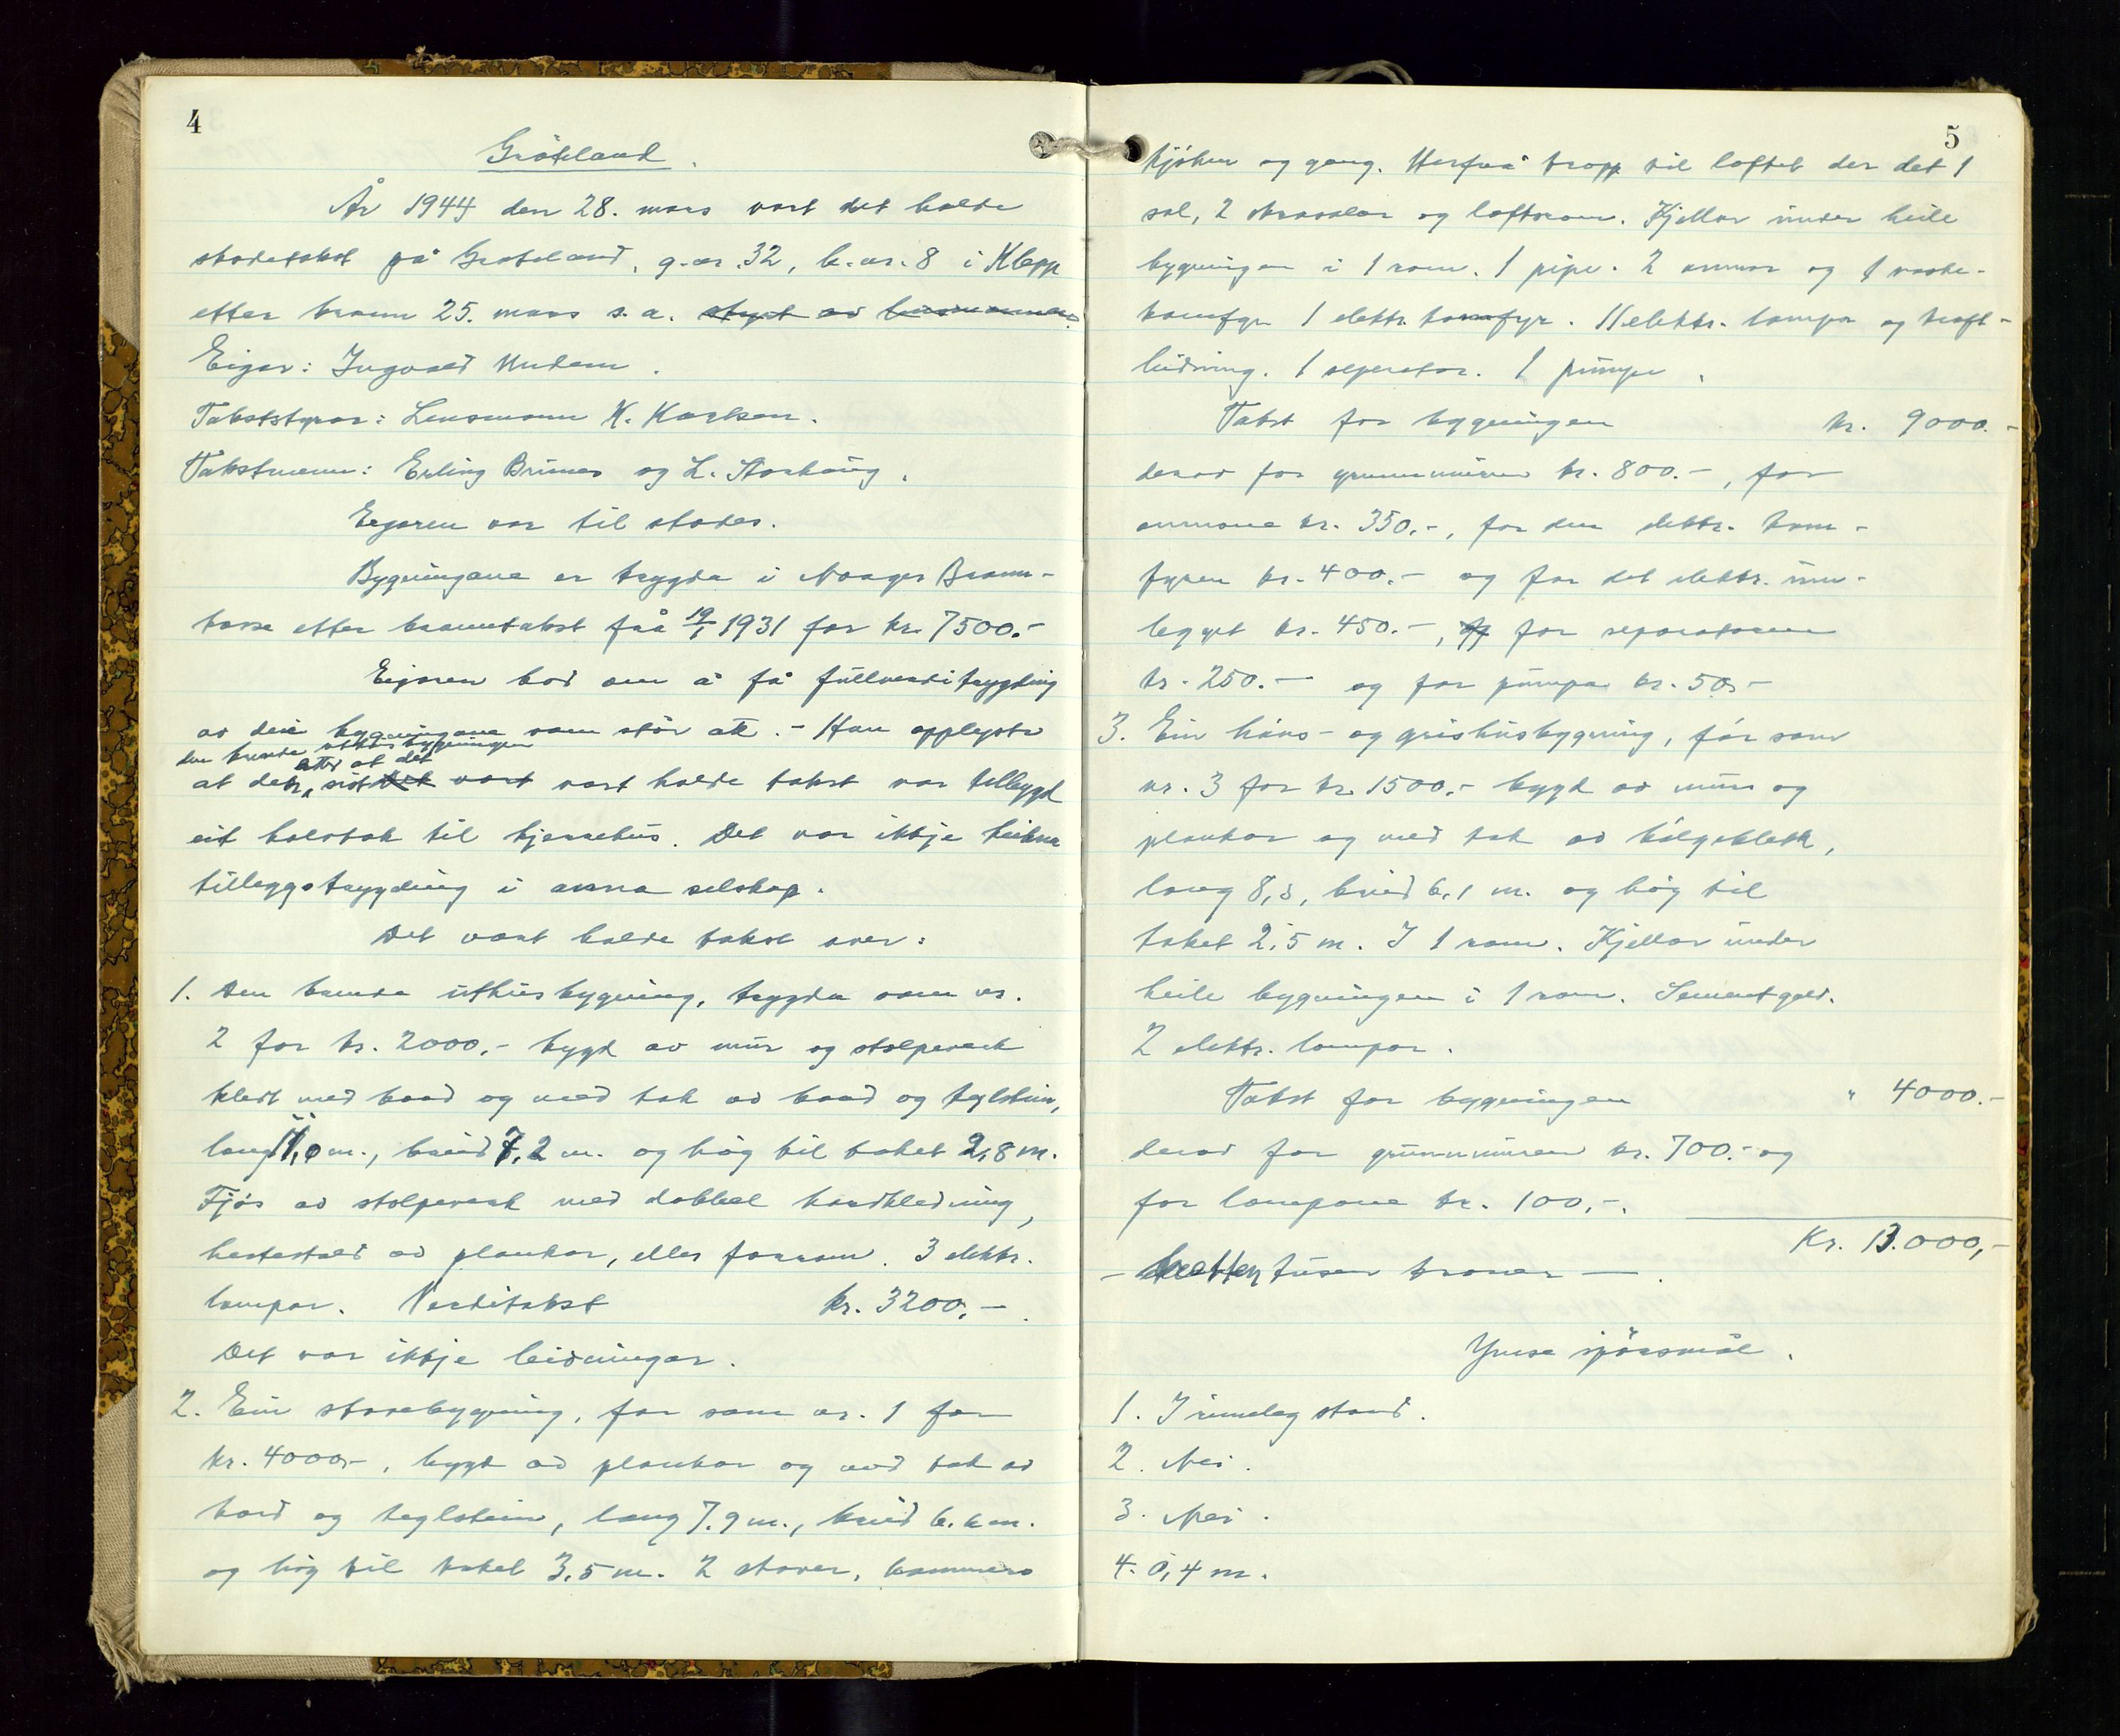 4
Gruteland.
År 1944 den 28. mars vart det halde
skadetakst på Gruteland, g.nr. 32, b.nr. 8 i Klepp
etter brann 25. mars s.a. styrt av lensmannen.
Eigar: Ingvald Undem.
Takststyrar: Lensmann K. Karlsen.
Takstmenn: Erling Brunes og L. Storhaug.
Eigaren var til stades.
Bygningane er trygda i Noregs Brann-
kasse etter branntakst frå 19/1 1931 for kr. 7500.-
Eigaren bad om å få fullverditrygding
av dei bygningane som står att. - Han opplyste
den brende uthusbygningen
etter at det
at det, sist det vart vart halde takst var tilbygd
eit halvtak til kjerrehus. Det var ikkje teikna
tilleggstrygding i anna selskap.
Det vart halde takst over:
1. Den brende uthusbygning, trygda som nr.
2 for kr. 2000.- bygd av mur og stolpeverk
kledt med bord og med tak av bord og teglstein,
lang 11,0 m., breid 7,2 m. og høg til taket 2,8 m.
Fjøs av stolpeverk med dobbel bordkledning,
hestestald av plankar, elles forrom. 3 elektr.
lampor. Verditakst kr. 3200,-
Det var ikkje leidningar.
2. Ein stovebygning, før som nr. 1 for
kr. 4000.-, bygd av plankar og med tak av
bord og teglstein, lang 7,9 m., breid 6,6 m.
og høg til taket 3,5 m. 2 stover, kammers
5
kjøken og gang. Herfrå tropp til loftet der det 1
sal, 2 skråsalar og loftsrom. Kjellar under heile
bygningen i 1 rom. 1 pipe. 2 omnar og 1 vaske-
komfyr 1 elektr. komfyr. 11 elektr. lampor og kraft-
leidning. 1 seperator. 1 pumpe.
Takst for bygningen kr. 9000.-
derav for grunnmuren kr. 800.-, for
omnane kr. 350.-, for den elektr. kom-
fyren kr. 400.- og for det elektr. inn-
legget kr. 450.-, for separatoren
kr. 250.- og for pumpa kr. 50.-
3. Ein høns- og grishusbygning, før som
nr. 3 for kr. 1500.- bygd av mur og
plankar og med tak av bølgeblekk,
lang 8,8, breid 6,1 m. og høg til
taket 2,5 m. I 1 rom. Kjellar under
heile bygningen i 1 rom. Sementgolv.
2 elektr. lampor.
Takst for bygningen " 4000.-
derav for grunnmuren kr. 700.- og
for lampone kr. 100,-.
Kr. 13.000,-
- tretten tusen kroner -.
Ymse spørsmål.
1. I rimeleg stand.
2. Nei.
3. Nei.
4. 0,4 m.